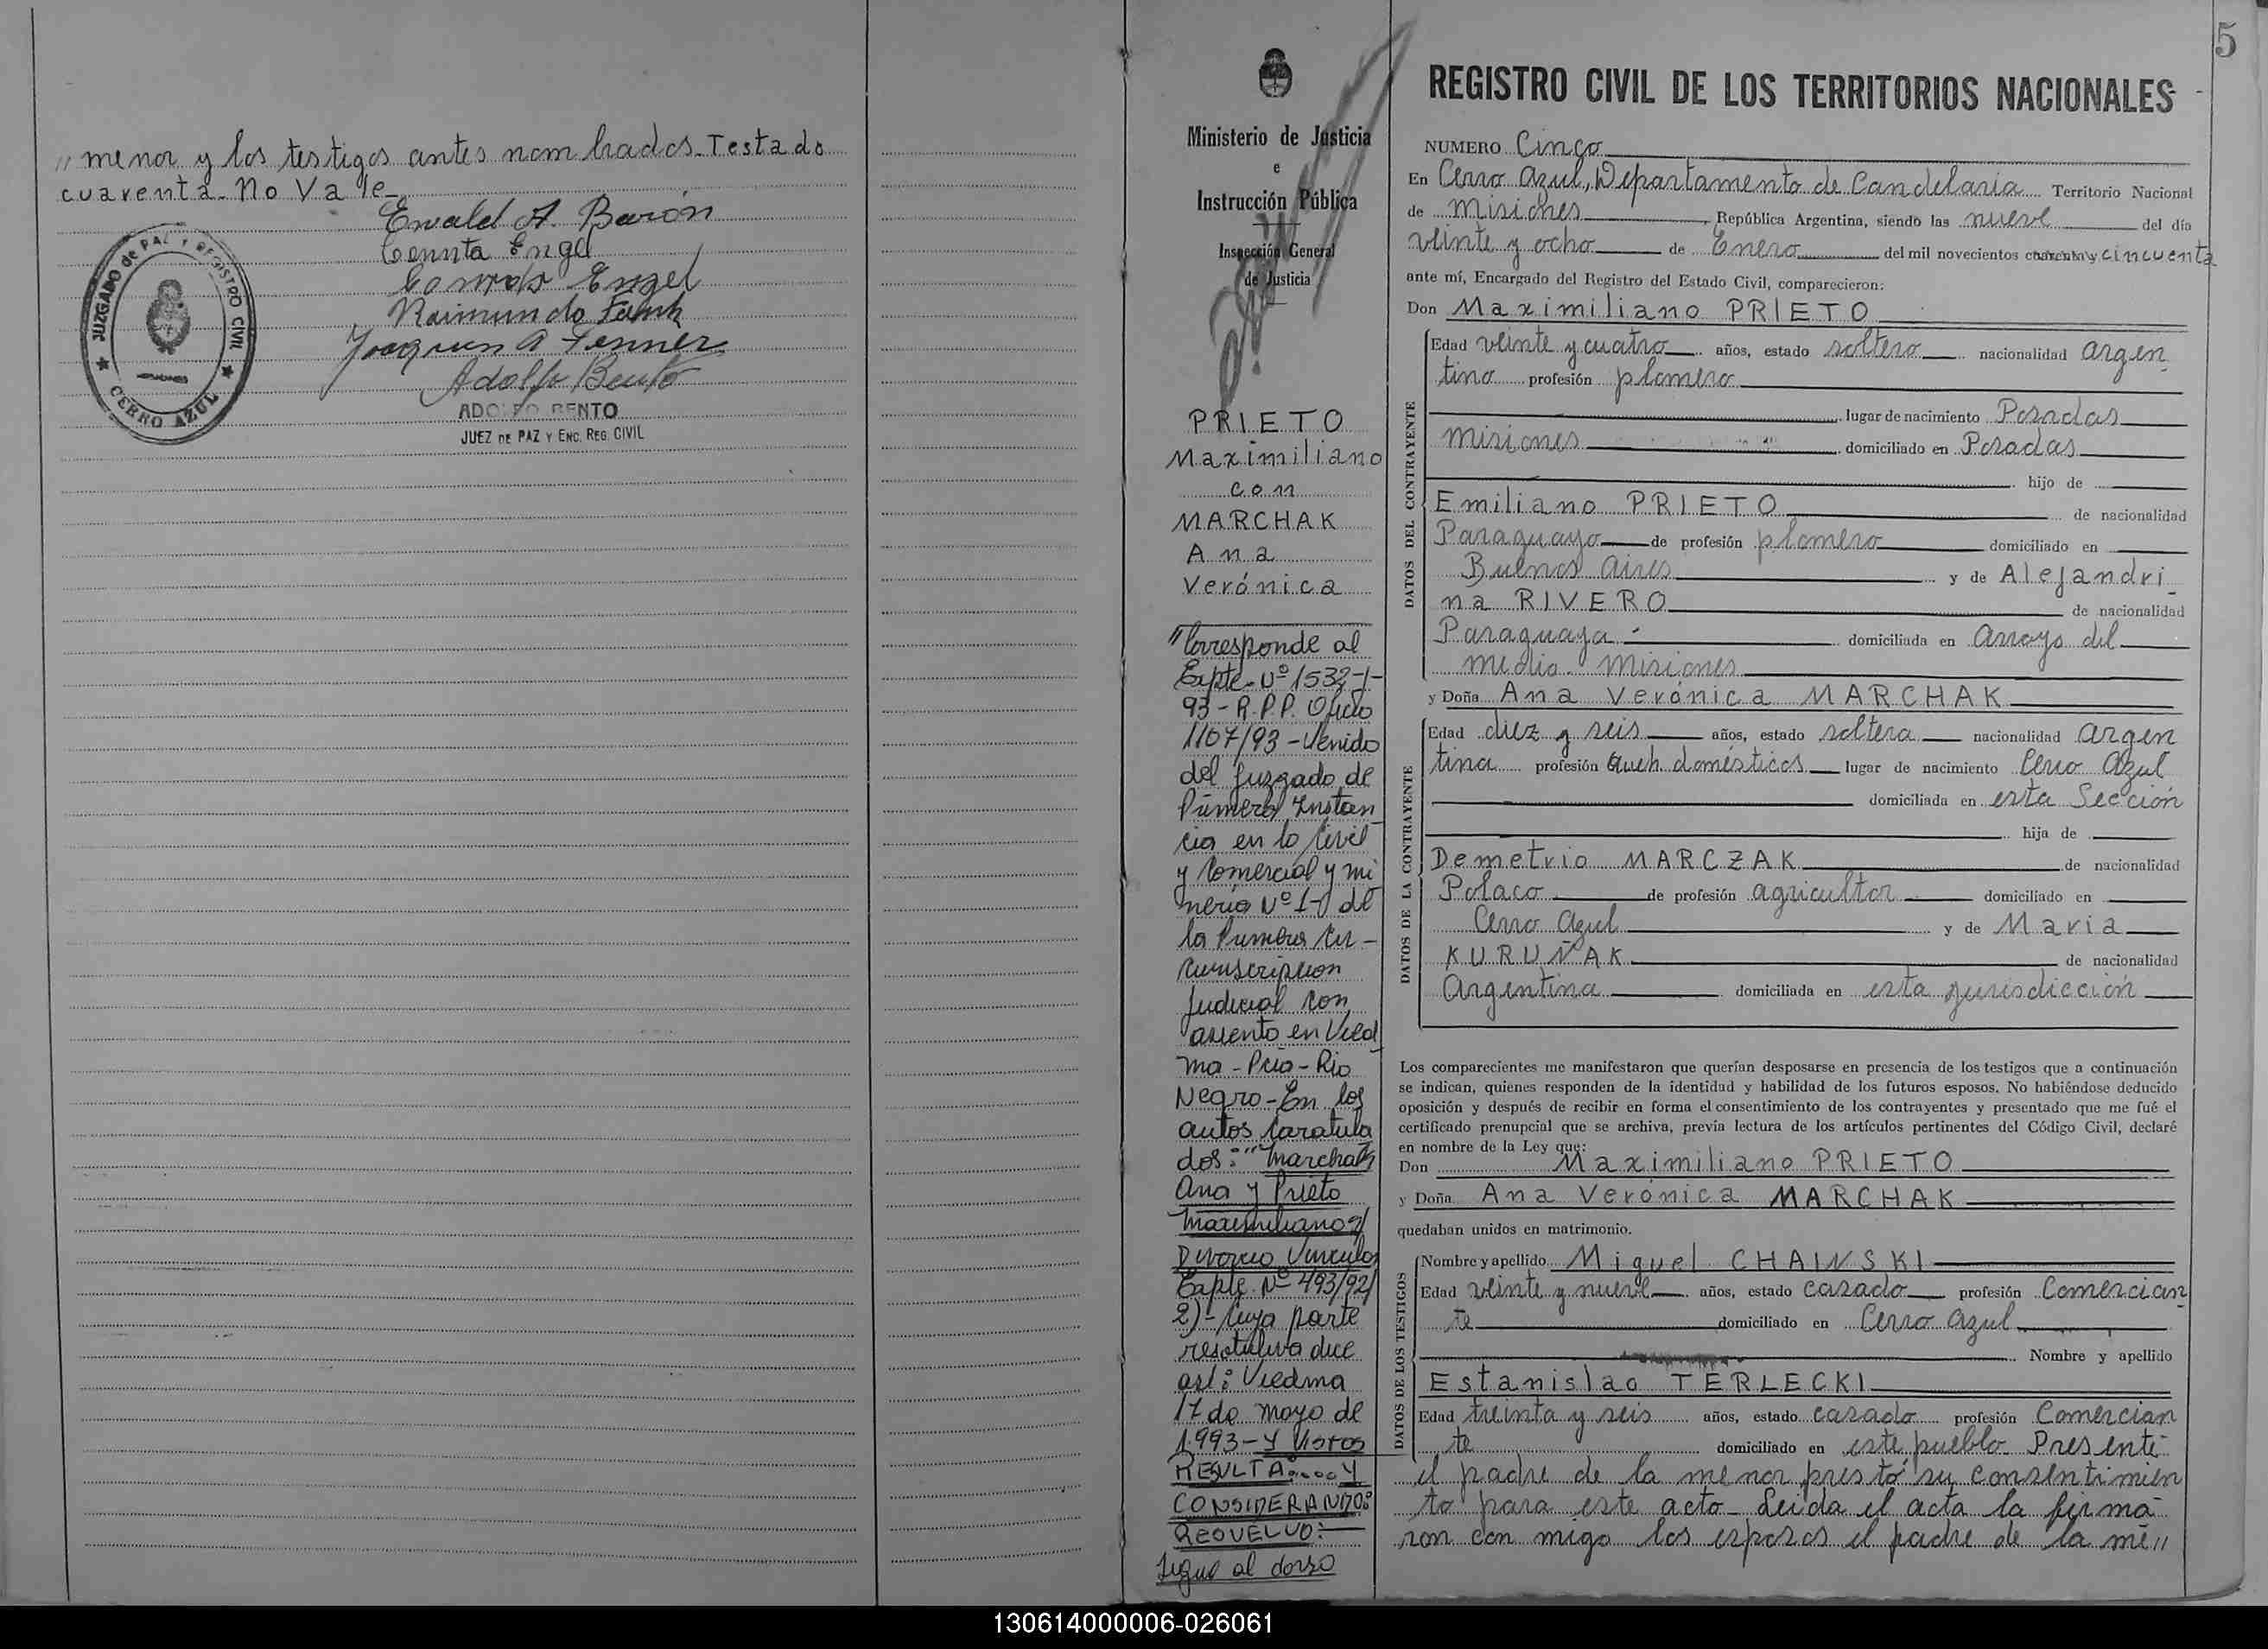 " menor y los testigos antes nombrados. Testado
cuarenta. No Vale
Ewald A. Barón
Engel
Engel
Raimundo
Joaquin A Fenner
Adolfo Bento
JUZGADO de PAZ Y REGISTRO CIVIL
CERRO AZUL
ADOLFO BENTO
JUEZ DE PAZ Y ENC. REG. CIVIL
Ministerio de Justicia
e
Instrucción Pública
Inspección General
de Justicia
PRIETO
Maximiliano
con
MARCHAK
Ana
Verónica
"Corresponde al
Expte. Nº 1532-1-
93-R.P.P. Oficio
1107/93-Venido
del Juzgado de
Primera Instan
cia en lo Civil
y Comercial y mi
nería Nº 1- del
la Primera Cir-
cunscripcion
Judicial con
asiento en Vied
ma-Pcia-Rio
Negro-En los
autos Caratula
dos: "Marchak
Ana y Prieto
Maximiliano s/
Divorcio Vincular
Expte. Nº 493/92/
2)-Cuya parte
resolutiva dice
así: Viedma
17 de mayo de
1.993-Y Vistos
RESULTA:....Y
CONSIDERANDO:
RESUELVO:
Sigue al dorso
5
REGISTRO CIVIL DE LOS TERRITORIOS NACIONALES
NUMERO Cinco
En Cerro Azul, Departamento de Candelaria Territorio Nacional
de Misiones, República Argentina, siendo las nueve del día
veinte y ocho de Enero del mil novecientos cuarenta y cincuenta
ante mí, Encargado del Registro del Estado Civil, comparecieron:
Don Maximiliano PRIETO
DATOS DEL CONTRAYENTE
Edad veinte y cuatro años, estado soltero nacionalidad argen
tino profesión plomero
lugar de nacimiento Posadas
Misiones domiciliado en Posadas
hijo de
Emiliano PRIETO de nacionalidad
Paraguayo de profesión plomero domiciliado en
Buenos Aires y de Alejandri
na RIVERO de nacionalidad
Paraguaya domiciliada en Arroyo del
medio. Misiones
y Doña Ana Verónica MARCHAK
DATOS DE LA CONTRAYENTE
Edad diez y seis años, estado soltera nacionalidad argen
tina profesión Queh. domésticos lugar de nacimiento Cerro Azul
domiciliada en esta Sección
hija de
Demetrio MARCZAK de nacionalidad
Polaco de profesión agricultor domiciliado en
Cerro Azul y de Maria
KURUÑAK de nacionalidad
Argentina domiciliada en esta jurisdicción
Los comparecientes me manifestaron que querían desposarse en presencia de los testigos que a continuación
se indican, quienes responden de la identidad y habilidad de los futuros esposos. No habiéndose deducido
oposición y después de recibir en forma el consentimiento de los contrayentes y presentado que me fué el
certificado prenupcial que se archiva, previa lectura de los artículos pertinentes del Código Civil, declaré
en nombre de la Ley que:
Don Maximiliano PRIETO
y Doña Ana Verónica MARCHAK
quedaban unidos en matrimonio.
DATOS DE LOS TESTIGOS
Nombre y apellido Miguel CHAINSKI
Edad veinte y nueve años, estado casado profesión Comercian
te domiciliado en Cerro Azul
Nombre y apellido
Estanislao TERLECKI
Edad treinta y seis años, estado casado profesión Comercian
te domiciliado en este pueblo. Presente
el padre de la menor prestó su consentimien
to para este acto. Leída el acta la firma
ron con migo los esposos el padre de la me"
130614000006-026061